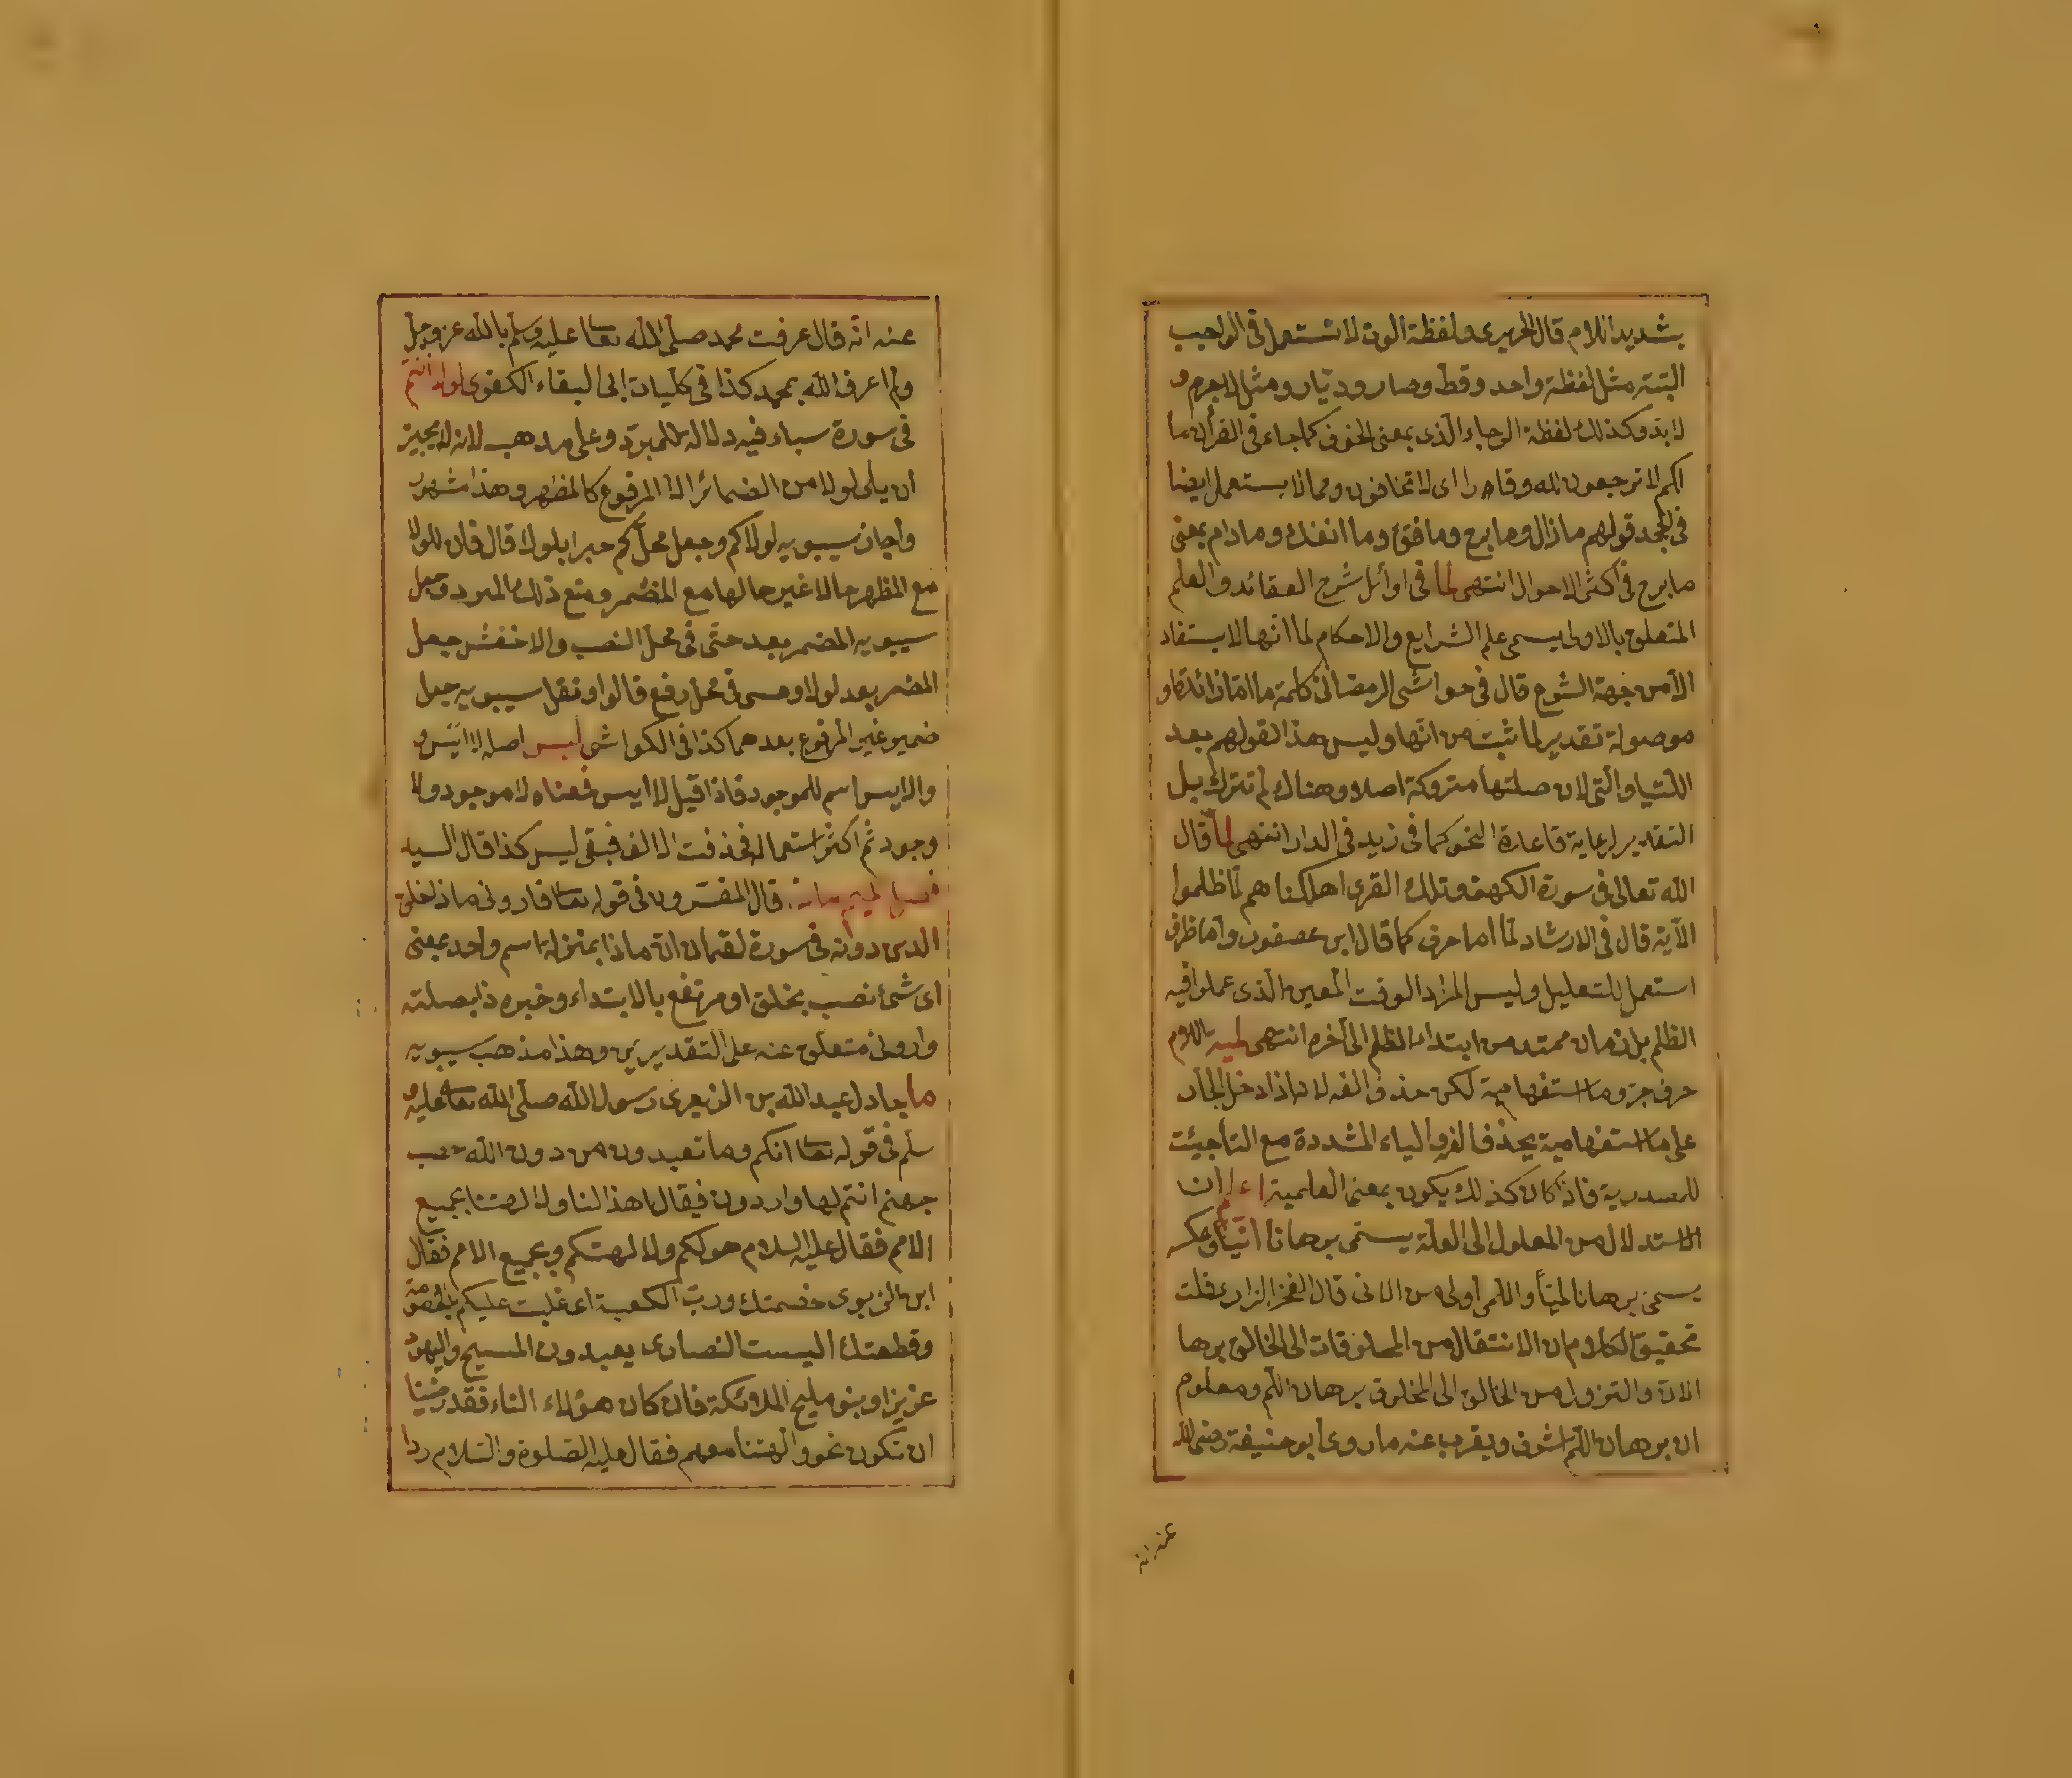 بشديد اللام قال الحريرى ولفظة الوت لا تستعمل فى الواجب
البتة مثل لفظة واحد وقط وصار وديار ومثل لاجرم و
لا بد وكذلك لفظة الرجاء الذى بمعنى الخوف كما جاء فى القرأن ما
لكم لا ترجعون لله وقارا اى لا تخافون ومما لا يستعمل ايضا
فى الجحد قولهم ما زال وما برح وما فتئ وما انفك وما دام بمعنى
ما برح فى اكثر الاحوال انتهى لما فى اوائل شرح العقائد والعلم
المتعلق بالاولى يسمى علم الشرايع والاحكام لما انها لا يستفاد
الا من جهة الشرع قال فى حواشى الرمضان كلمة ما اما زائدة او
موصولة تقدير لما ثبت من انها وليس هذا القولهم بعد
اللتيا والتى لان صلتها متروكة اصلا وهناك لم تترك بل
التقدير لرعاية قاعدة النحو كما فى زيد فى الدار انتهى لما قال
الله تعالى فى سورة الكهف وتلك القرى اهلكناهم لما ظلموا
الآية قال فى الارشاد لما اما حرف كما قال ابن عصفور واما ظرف
استعمل للتعليل وليس المراد الوقت المعين الذى عملوا فيه
الظلم بل زمان ممتد من ابتداء الظلم الى أخره انتهى لميه اللام
حرف جر وما استفهامية لكن حذف الفه لانه اذا دخل الجار
على ما استفهامية يحذف الفه والياء المشددة مع التا جيئت
للمصدرية فاذا كان كذلك يكون بمعنى العلمية اعلم ان
الاستدلال من المعلول الى العلة يسمى برهانا انيا وعكسه
يسمى برهانا لميا واللمى اولى من الانى قال الفخر الرازى فلت
تحقيق الكلام ان الانتقال من المخلوقات الى الخالق برها
الان والنزول من الخالق الى المخلوق برهان اللم ومعلوم
ان برهان اللم اشرف ويقرب عنه ما روى ابو حنيفة رضى الله
عنه انه
عنه انه قال عرفت محمد صلى الله تعا عليه وسلم بالله عز وجل
ولم اعرف الله بمحمد كذا فى كليات ابى البقاء الكفوى لولا انتم
فى سورة سباء فيه دلالة للمبرد وعلى مذهب لانه لا يجيز
ان يلى لولا من الضمائر الا المرفوع كالمظهر وهذا مشهور
واجاز سيبويه لولاكم وجعل محل كم جرا بلولا قال فان للولا
مع المظهر حالا غير حالها مع المضمر ومنع ذلك المبرد وجعل
سيبويه المضمر بعد حتى فى محل النصب والاخفش جعل
المضمر بعد لولا وعسى فى محل رفع قالوا ونقل سيبويه جعل
ضمير غير المرفوع بعد هما كذا فى الكواشى ليس اصله لا ايس و
والايس اسم للموجود فاذا قيل لا ايس فمعناه لا موجود ولا
وجود ثم اكثر استعماله فحذفت الالف فبقى ليس كذا قال السيد
قال المفسرون فى قوله تعا فارونى ماذا خلق
الذين دونه فى سورة لقمان ان ماذا بمنزلة اسم واحد بمعنى
اى شئ نصب بخلق او مرتفع بالابتداء وخبره ذا بصلته
وارونى متعلق عنه على التقديرين وهذا مذهب سيبويه
ما جادل عبد الله بن الزبعرى رسول الله صلى الله تعا عليه و
سلم فى قوله تعا انكم وما تعبدون من دون الله حصب
جهنم انتم لها واردون فيقال اهذا لنا ولالهتنا بجميع
الامم فقال عليه السلام هو لكم ولالهتكم وبجميع الامم فقال
ابن الزبوى خصمتك ورب الكعبة اى غلبت عليكم بالخصومة
وقطعتك اليست النصارى يعبدون المسيح واليهود
عزيزا وبنو مليح الملائكة فان كان هؤلاء الناء فقد رضينا
ان نكون نحن والهتنا معهم فقال عليه الصلوة والسلام ردا